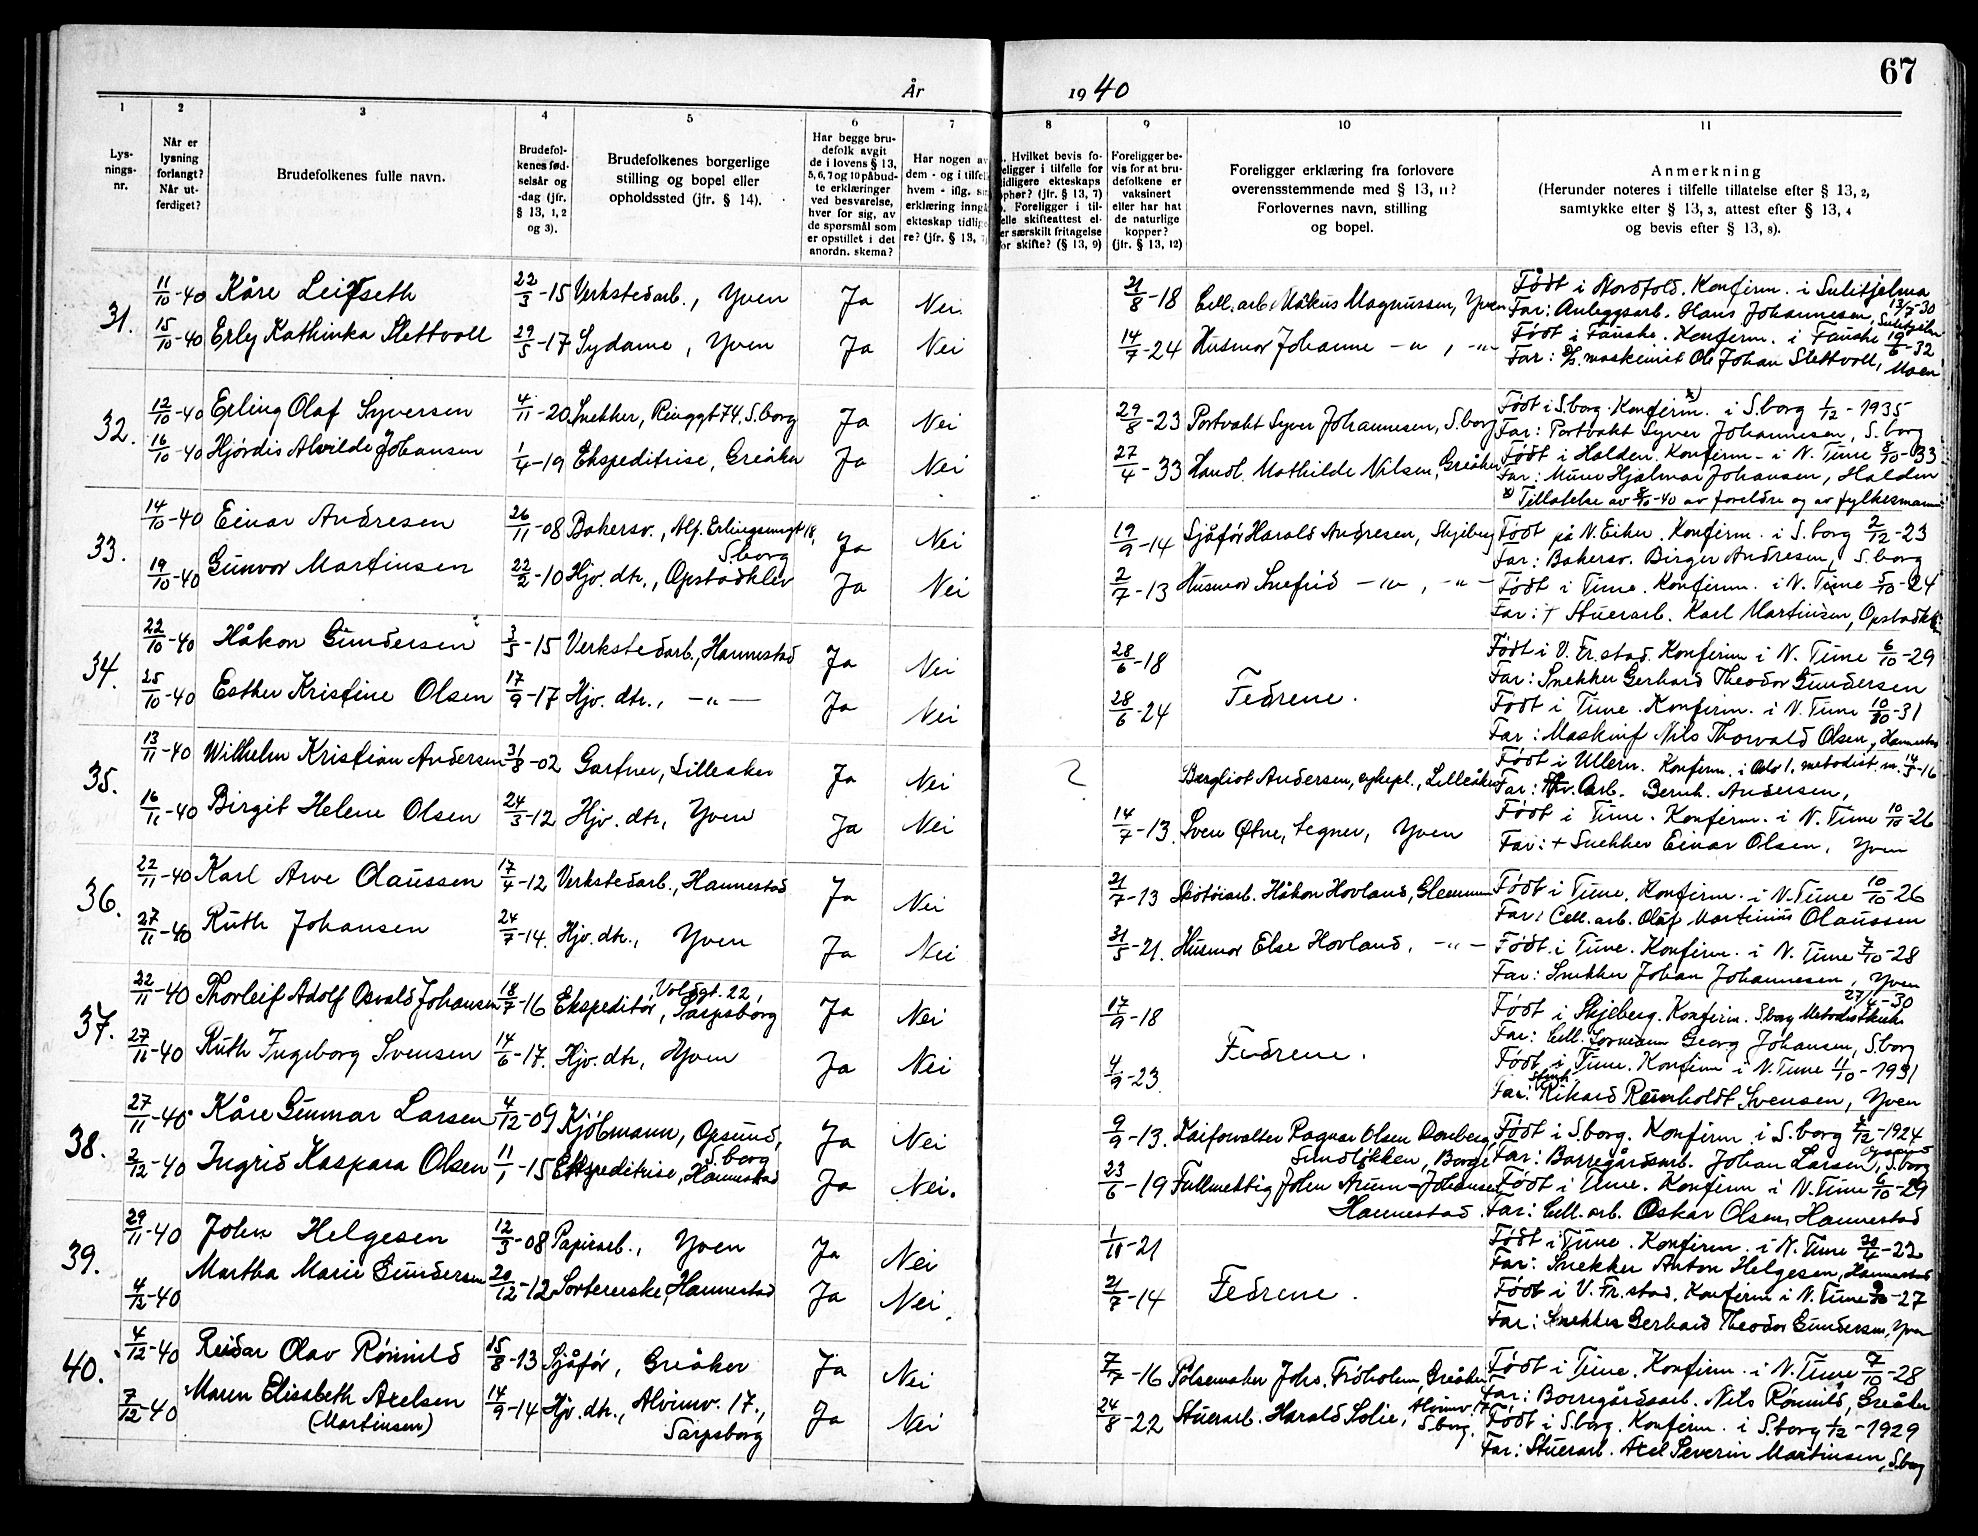 67
År 1940
1 2 3 4 5 6 7 8 9 10 11
Lys-
nings-
nr.
Når er
lysning
forlangt?
Når ut-
ferdiget?
Brudefolkenes fulle navn.
Brudefol-
kenes fød-
selsår og
-dag (jfr.
§ 13, 1, 2
og 3).
Brudefolkenes borgerlige
stilling og bopel eller
opholdssted (jfr. § 14).
Har begge bru-
defolk avgit
de i lovens § 13,
5, 6, 7 og 10 påbud-
te erklæringer
ved besvarelse,
hver for sig, av
de spørsmål som
er opstillet i det
anordn. skema?
Har nogen av
dem - og i tilfel
hvem - iflg. s
erklæring inngå
ekteskap tidlig
re? (jfr. § 13, 7)
. Hvilket bevis fo-
eligger i tilfelle for
idligere ekteskaps
phør? (jfr. § 13, 7)
. Foreligger i til-
elle skifteattest el-
er særskilt fritagelse
or skifte? (§ 13, 9)
Foreligger be-
vis for at bru-
defolkene er
vaksinert
eller har hat
de naturlige
kopper?
(jfr. § 13, 12)
Foreligger erklæring fra forlovere
overensstemmende med § 13, 11?
Forlovernes navn, stilling
og bopel.
Anmerkning
(Herunder noteres i tilfelle tillatelse efter § 13, 2,
samtykke efter § 13, 3, attest efter § 13, 4
og bevis efter § 13, 8).
31. 11/10-40 Kåre Leifseth 22/3-15 Verkstedarb., Yven Ja Nei 21/8-18 Cell.arb. Måkus Magnussen, Yven Født i Nordfold. Konfirm. i Sulitjelma 13/7-30
Far: Anleggsarb. Hans Johannesen, Sulitjelma
15/10-40 Erly Kathinka Slettvoll 29/5-17 Sydame, Yven Ja Nei 14/7-24 Husmor Johanne -"-, -"- Født i Fauske. Konfirm. i Fauske 19/6-32
Far: maskinist Ole Johan Slettvoll, Moen
32. 12/10-40 Erling Olaf Syversen 4/11-20 Snekker, Ringgt 74, S.borg Ja Nei 29/8-23 Portvakt Syver Johannesen, S.borg Født i S.borg. Konfirm. x) i S.borg 1/12-1935
Far: Portvakt Syver Johannesen, S.borg
16/10-40 Hjördis Alvilde Johansen 1/4-19 Ekspeditrise, Greåker Ja Nei 27/4-33 Handl. Mathilde Nilsen, Greåker Født i Halden. Konfirm. i N. Tune 8/10-33
Far: Murer Hjalmar Johansen, Halden
x) Tillatelse av 8/10-40 av foreldre og av fylkesmann
33. 14/10-40 Einar Andresen 26/11-08 Bakersv., Alf. Erlingsensgt 18, S.borg Ja Nei 19/9-14 Sjåför Harald Andresen, Skjeberg Født på N. Eiker. Konfirm. i S.borg 2/12-23
Far: Bakersv. Birger Andresen, S.borg
19/10-40 Gunvor Martinsen 22/2-10 Hjv. dtr., Opstadklev Ja Nei 2/7-13 Husmor Snefrid -"-, -"- Født i Tune. Konfirm. i N. Tune 5/10-24
Far: † Stuerarb. Karl Martinsen, Opstadkl
34. 22/10-40 Håkon Gundersen 3/5-15 Verkstedarb., Hannestad Ja Nei 28/6-18 Fedrene. Født i V. Fr.stad. Konfirm i N. Tune 6/10-29
Far: Snekker Gerhard Theodor Gundersen
25/10-40 Esther Kristine Olsen 17/9-17 Hjv. dtr., -"- Ja Nei 28/6-24 Født i Tune. Konfirm. i N. Tune 10/10-31
Far: Maskinf Nils Thorvald Olsen, Hannestad
35. 13/11-40 Wilhelm Kristian Andersen 31/8-02 Gartner, Lilleaker Ja Nei ? Bergliot Andersen, sykepl., Lilleåker Født i Ullern. Konfirm. i Oslo 1. metodist m. 14/5-16
Far: Arb. Bernh. Andersen,
16/11-40 Birgit Helene Olsen 24/3-12 Hjv. dtr, Yven Ja Nei 14/7-13. Sven Øtne, tegner, Yven Født i Tune. Konfirm. i N. Tune 10/10-26
Far: + Snekker Einar Olsen, Yven
36. 22/11-40 Karl Arve Olaussen 17/4-12 Verkstedarb., Hannestad Ja Nei 21/7-13 Skotöiarb. Håkon Hovland, Glemmen Født i Tune. Konfirm. i N. Tune 10/10-26
Far: Cell.arb. Olaf Martinius Olaussen
27/11-40 Ruth Johansen 24/7-14. Hjv. dtr., Yven Ja Nei 31/5-21. Husmor Else Hovland, -"- Født i Tune. Konfirm. i N. Tune 7/10-28
Far: Snekker Johan Johannesen, Yven
37. 22/11-40 Thorleif Adolf Osvald Johansen 18/7-16 Ekspeditör, Voldgt. 22, Sarpsborg Ja Nei 17/9-18 Fedrene. Født i Skjeberg. Konfirm. S.borg Metodistkirke 27/4-30
Far: Cell. Georg Johansen, S.borg
27/11-40 Ruth Ingeborg Svensen 14/6-17. Hjv. dtr, Yven Ja Nei 4/9-23. Født i Tune. Konfirm i N. Tune 11/10-1931
Far: Rikard Reinholdt Svensen, Yven
38. 27/11-40. Kåre Gunnar Larsen 4/12-09 Kjöbmann, Opsund, S.borg Ja Nei 9/9-13. Ragnar Olsen Sundløkken, Borge Født i S.borg. Konfirm i S.borg 7/12-1924
Far: Borregårdsarb. Johan Larsen, Opsund S.borg
2/12-40 Ingrid Kaspara Olsen 11/1-15 Ekspeditrise, Hannestad Ja Nei. 23/6-19 Fullmektig John Arum-Johansen Hannestad. Født i Tune. Konfirm i N. Tune 6/10-29
Far: Cell.arb. Oskar Olsen, Hannestad
39. 29/11-40 John Helgesen 12/3-08 Papirarb., Yven Ja Nei 1/11-21 Fedrene. Født i Tune. Konfirm. i N. Tune 30/4-22
Far: Snekker Anton Helgesen, Hannestad
4/12-40 Martha Marie Gundersen 20/12-12 Sortererske, Hannestad Ja Nei. 21/7-14 Født i V. Fr.stad. Konfirm i N. Tune 9/10-27
Far: Snekker Gerhard Theodor Gundersen, Yven
40. 4/12-40 Reidar Olav Römuld 15/8-13 Sjåför, Greåker Ja Nei 7/7-16 Pölsemaker Johs. Fröholm, Greåker Født i Tune. Konfirm. i N. Tune 7/10-28
Far: Borregårdsarb. Nils Römuld, Greåker
7/12-40 Maren Elisabeth Axelsen (Martinsen) 14/9-14 Hjv. dtr., Alvimv. 17., Sarpsborg Ja Nei 24/8-22 Stuerarb. Harald Solie, Alvimv. 17, S.borg. Født i S.borg. Konfirm. i S.borg 1/12-1929
Far: Stuerarb. Axel Severin Martinsen, S.borg